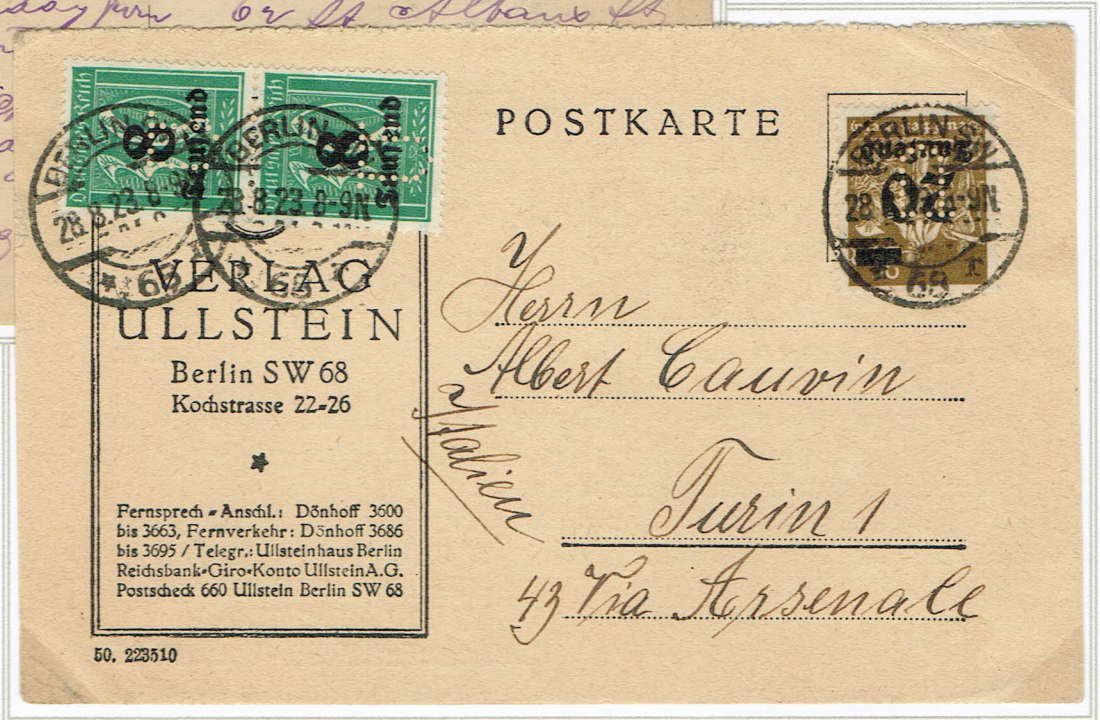 62 St Albans St
POSTKARTE
Deutsches Reich
8
Tausend
8
Tausend
20
Tausend
BERLIN
28.8.23.8-9N
68
BERLIN
28.8.23.8-9N
68
BERLIN SW
28
8-9N
68
r
VERLAG
ULLSTEIN
Berlin SW 68
Kochstrasse 22-26
Fernsprech-Anschl.: Dönhoff 3600
bis 3663, Fernverkehr: Dönhoff 3686
bis 3695 / Telegr.: Ullsteinhaus Berlin
Reichsbank-Giro-Konto Ullstein A.G.
Postscheck 660 Ullstein Berlin SW 68
50. 223510
Herrn
Albert Cauvin
Italien
Turin 1
43 Via Arsenale